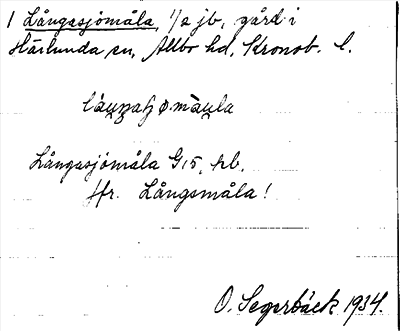 1 Långasjömåla, 1/2 jb, gård i
Härlunda sn, Allbo hd, Kronob. l.
Långasjömåla G15, kb.
Jfr. Långsmåla!
O. Segerbäck 1934.